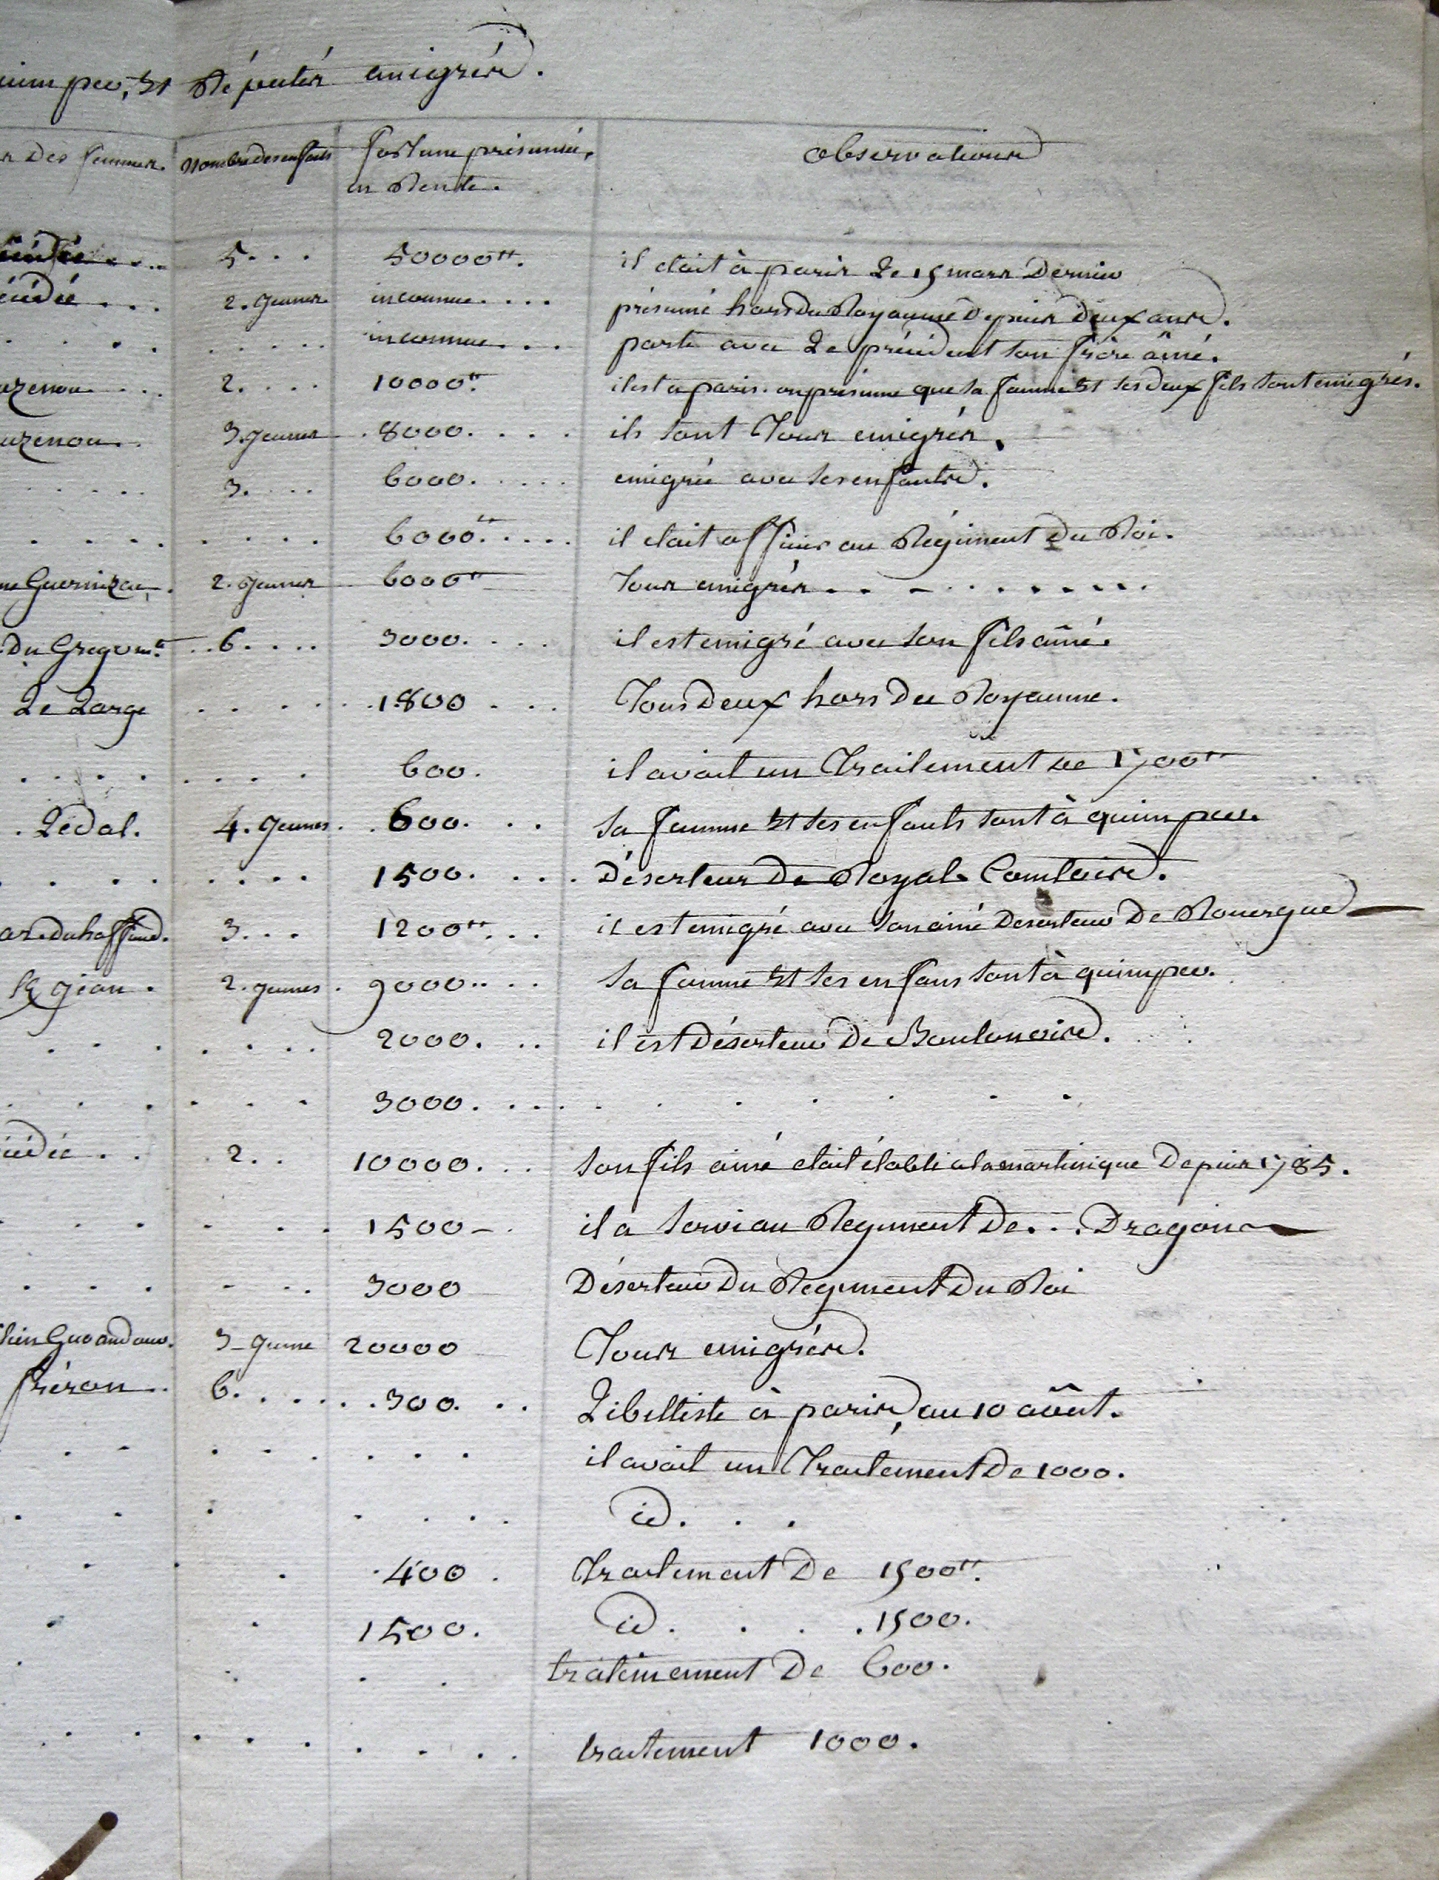 quimper, et Réputés emigrés.
des femmes. nombre des enfants fortune présumée, observations
en Rente.
décédée . . . 5. . . 50000tt. il était à paris Le 15 mars Dernier
décédée . . . 2. jeunes inconnue. . . . présumé hors du Royaume Depuis deux ans.
inconnue. . . parti avec Le précédent son frère aîné.
2. . . . 10000tt. il est a paris. on présume que sa femme et ses deux fils sont emigrés.
3. jeunes 8000. . . . ils sont Tous emigrés.
3. . . . 6000. . . . . emigrée avec ses enfants.
6000tt. . . . . il était officier au Régiment Du Roi.
Guernizac. 2. jeunes 6000tt Tous emigrés . . . . . . . . .
Du Grego 6. . . . 3000. . . . il est emigré avec son fils aîné.
Le Large 1800 . . . Tous Deux hors Du Royaume.
600. il avait un Traitement de 1700tt
Ledal. 4. jeunes. 600. . . . sa femme et ses enfants sont à quimper.
1500. . . . Déserteur De Royal Comtois.
3. . . 1200tt. . . il est emigré avec son ainé Deserteur De Rouergue
2. jeunes . 9000. . . . sa femme et ses enfans sont à quimper.
2000. . . il est Déserteur De Boulonois.
3000. . . . . . . . . .
2. . 10000. . . son fils ainé était établi a la martinique Depuis 1785.
1500 – il a servi au Regiment De. . . Dragons
3000 Déserteur Du Regiment Du Roi
3_ jeune 20000 Tous emigrés.
fréron 6. . . . . . . 300. . . Libelliste à paris, au 10 août.
il avait un Traitement De 1000.
id. . . .
400 . Traitement De 1500tt.
1500. id . . . . 1500.
traitement De 600.
traitement 1000.